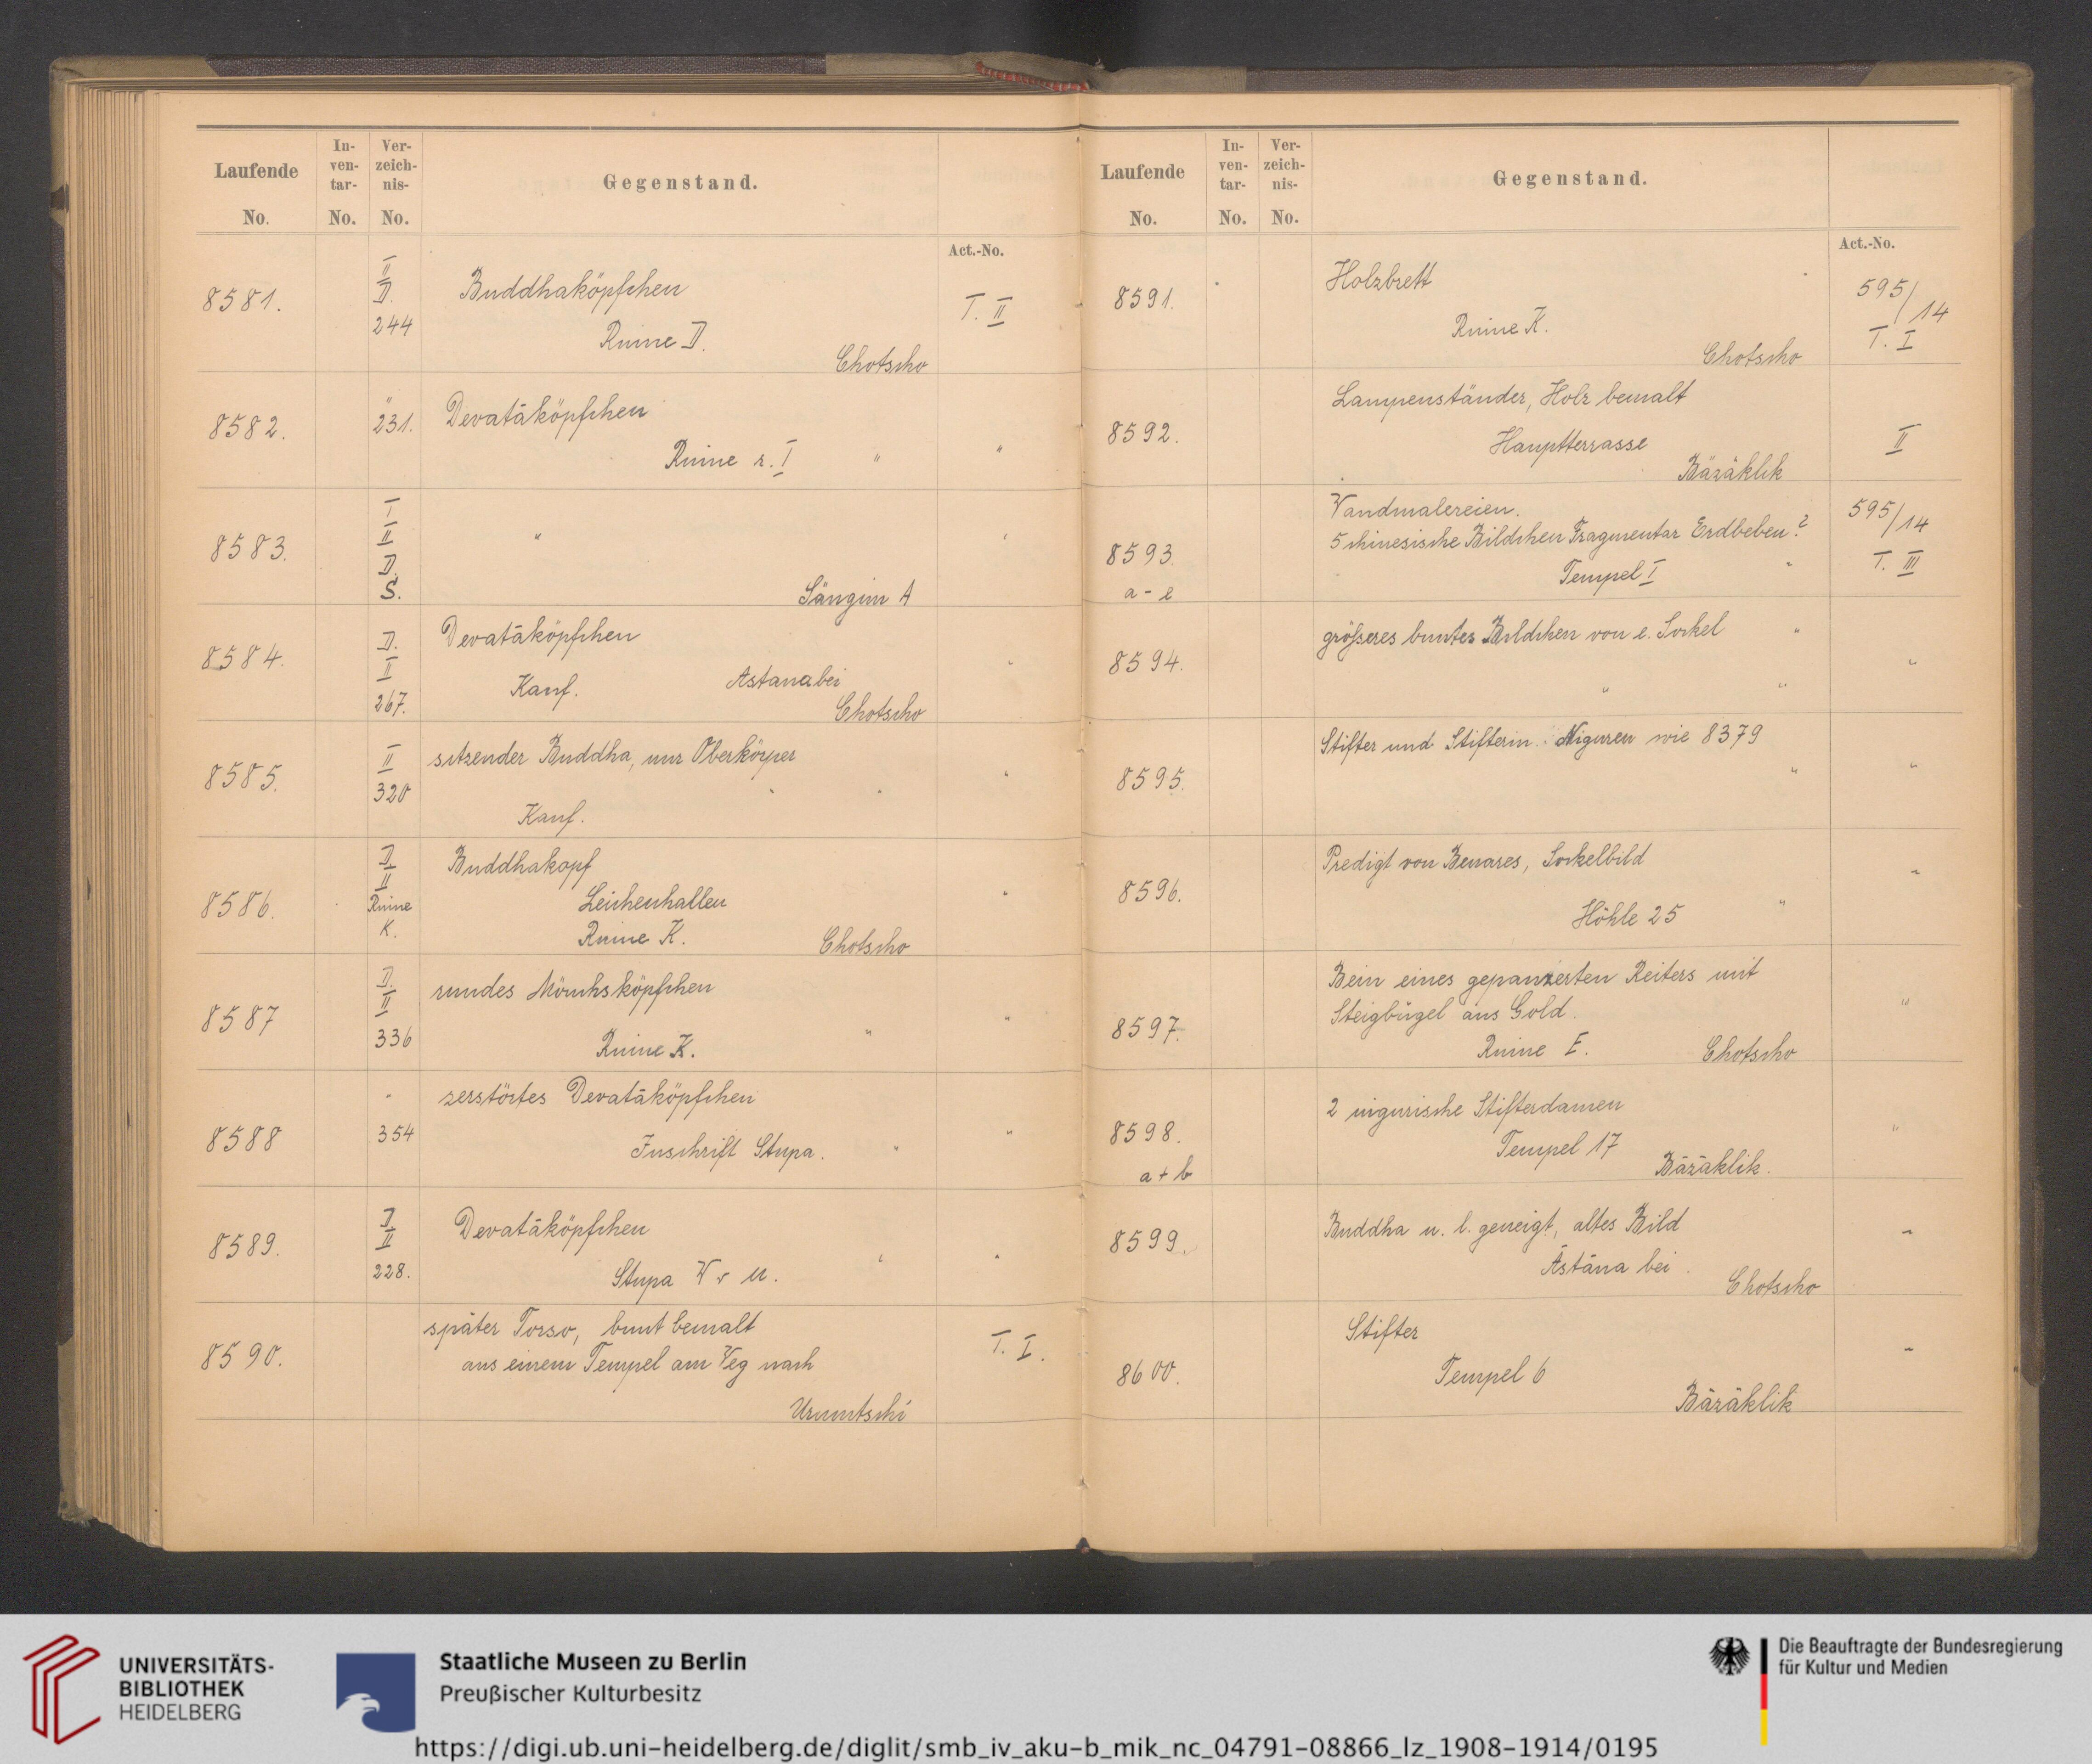 Laufende No.
In-ven-tar- No.
Ver-zeich-nis- No.
Gegenstand.
Act.-No.
8581.
I II D. 244
Buddhaköpfchen
Ruine D.
Chotscho
T. II
8582.
" 231.
Devatāköpfchen
Ruine r. I " "
8583.
I II D. S.
" "
Sängim A
8584.
D. II 267.
Devatāköpfchen
Kauf. Astana bei "
Chotscho
8585.
II 320
sitzender Buddha, nur Oberkörper
" " "
Kauf.
8586.
D II Ruine K.
Buddhakopf
Leichenhallen "
Ruine K. Chotscho
8587
D. II 336
rundes Mönchsköpfchen
Ruine K. " "
8588
" 354
zerstörtes Devatāköpfchen
Inschrift Stupa. " "
8589.
D II 228.
Devatāköpfchen
Stupa W v U. " "
8590.
später Torso, bunt bemalt
aus einem Tempel am Weg nach
Urumtschi
T. I.
Laufende No.
In-ven-tar- No.
Ver-zeich-nis- No.
Gegenstand.
Act.-No.
8591.
Holzbrett
Ruine K.
Chotscho
595/14
T. I
8592.
Lampenständer, Holz bemalt
Hauptterrasse
Bäzäklik
II
8593.
a - e
Wandmalereien.
5 chinesische Bildchen Fragmentar Erdbeben?
Tempel I "
595/14
T. III
8594.
größeres buntes Bildchen von e. Sockel "
" " "
8595.
Stifter und Stifterin. Uiguren wie 8379
" "
8596.
Predigt von Benares, Sockelbild
Höhle 25 " "
8597.
Bein eines gepanzerten Reiters mit
Steigbügel aus Gold. "
Ruine E. Chotscho
8598.
a + b
2 uigurische Stifterdamen
Tempel 17 "
Bäzäklik.
8599.
Buddha n. l. geneigt, altes Bild "
Āstāna bei
Chotscho
8600.
Stifter "
Tempel 6
Bäzäklik
UNIVERSITÄTS-
BIBLIOTHEK
HEIDELBERG
Staatliche Museen zu Berlin
Preußischer Kulturbesitz
Die Beauftragte der Bundesregierung
für Kultur und Medien
https://digi.ub.uni-heidelberg.de/diglit/smb_iv_aku-b_mik_nc_04791-08866_lz_1908-1914/0195